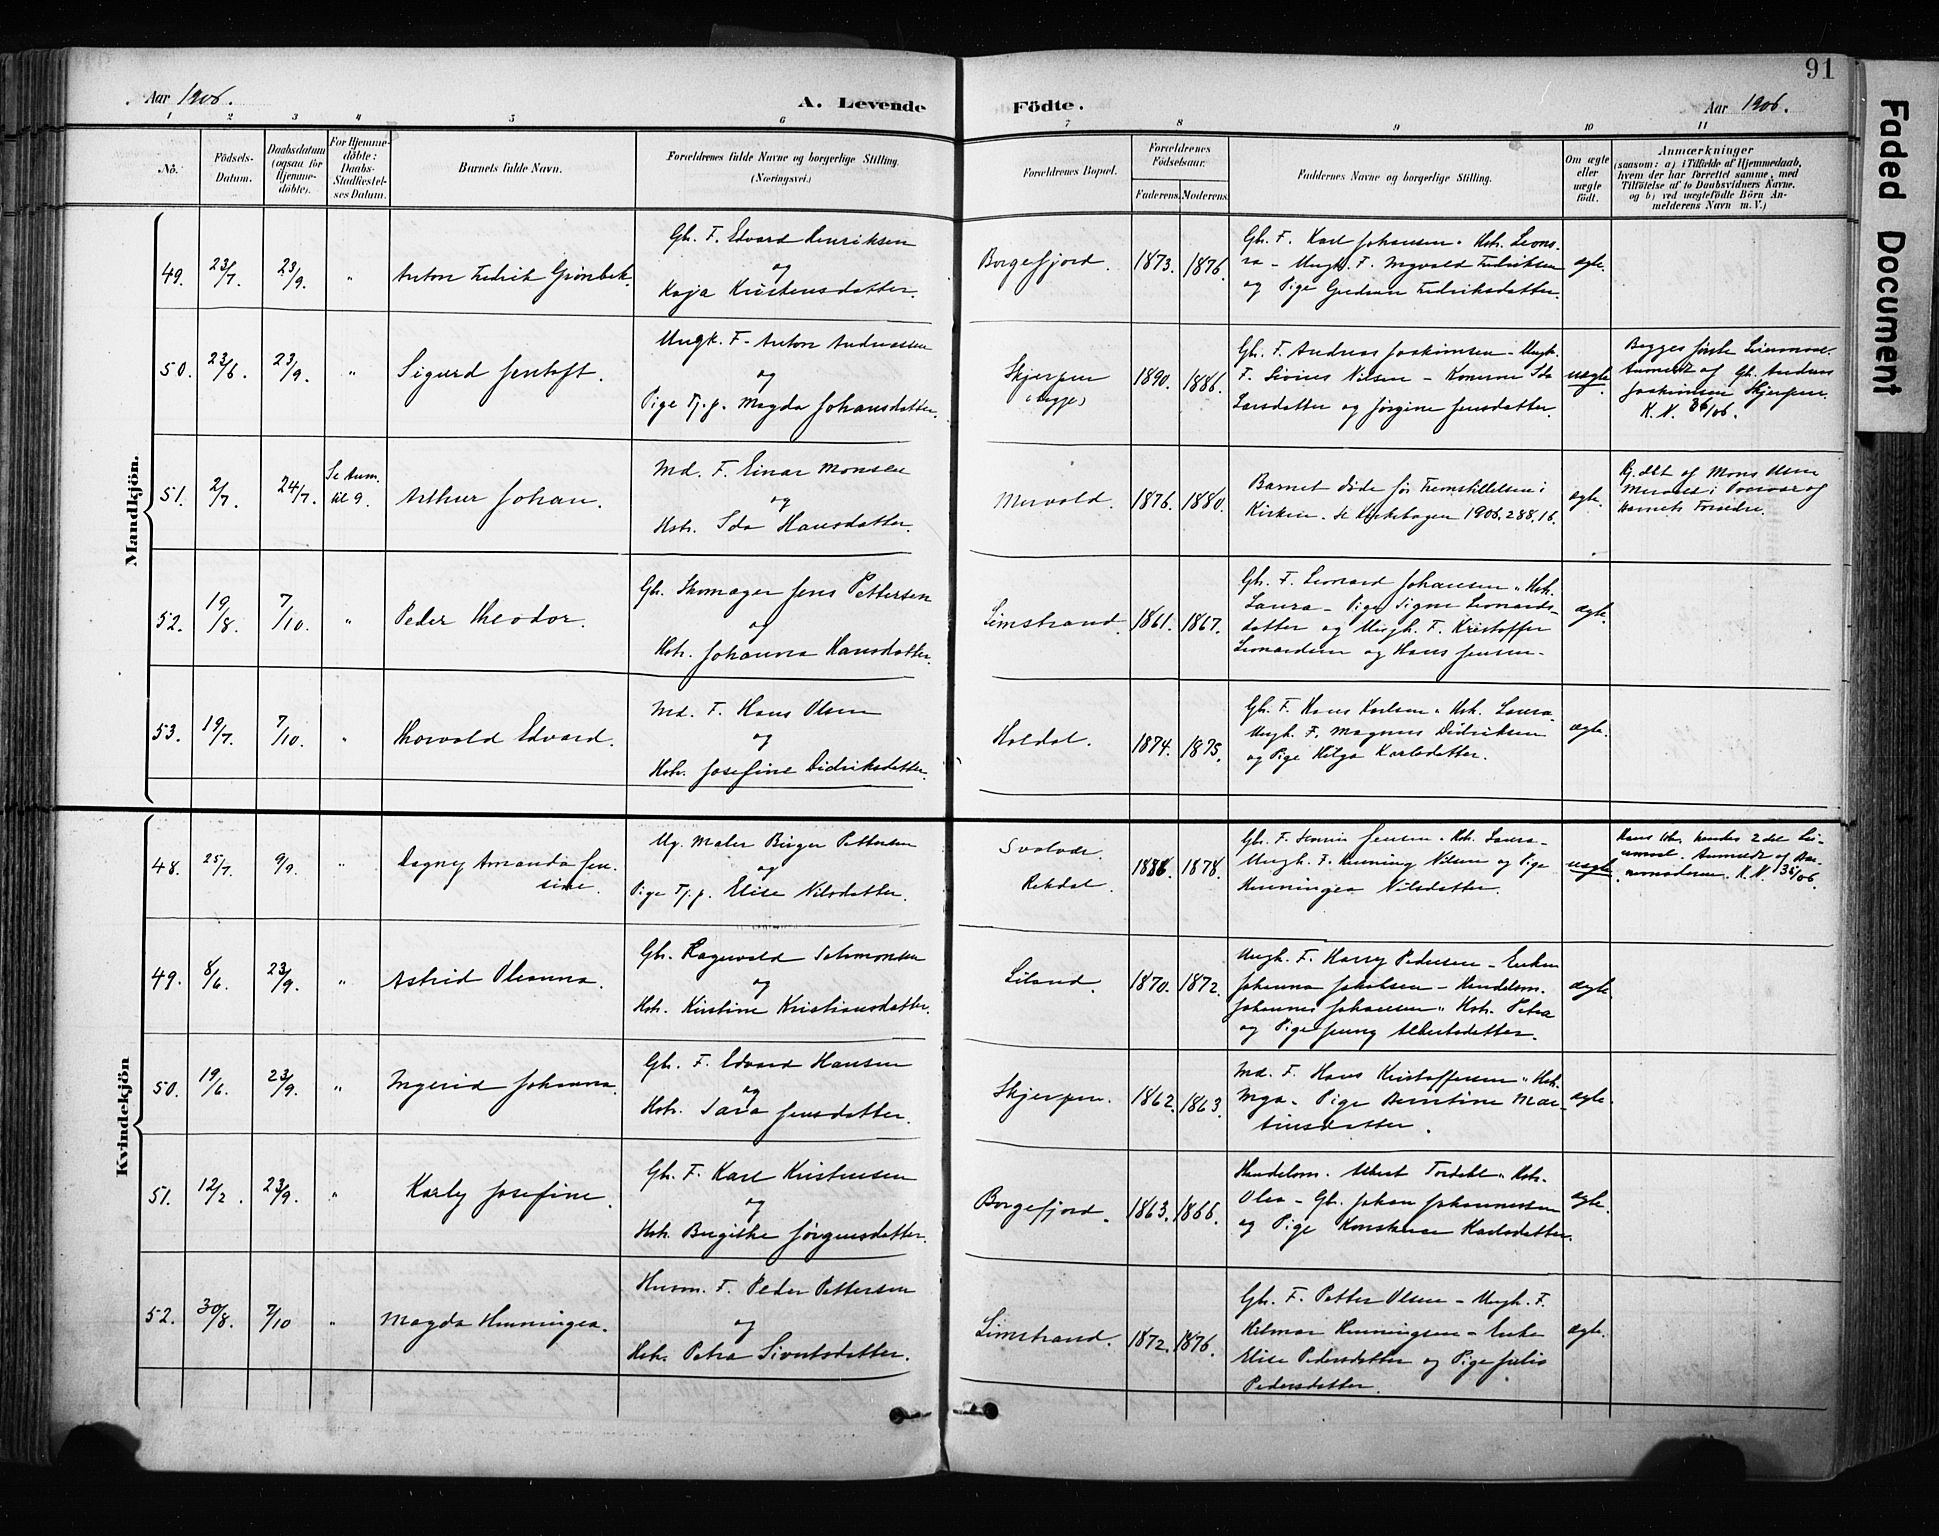 91
Aar 1906.
A. Levende
Födte.
Aar 1906.
Faded Document
1 2 3 4 5 6 7 8 9 10 11
Nö.
Födsels-Datum.
Daabsdatum (ogsaa for Hjemme-döbte).
For Hjemme-döbte: Daabs-Stadfæstel-ses Datum.
Barnets fulde Navn.
Forældrenes fulde Navne og borgerlige Stilling. (Næringsvei.)
Forældrenes Bopæl.
Forældrenes Födselsaar.
Faderens. Moderens.
Faddernes Navne og borgerlige Stilling.
Om ægte eller uægte födt.
Anmærkninger
(saasom: a) i Tilfælde af Hjemmedaab,
hvem der har forrettet samme, med
Tilföielse af to Daabsvidners Navne.
og b) ved uægtefödte Börn An-
melderens Navn m. V.)
Mandkjön.
49. 23/7. 23/9. "
Anton Fedrik Grönbek.
Gb. F. Edvard Henriksen
og
Kaja Kristensdatter.
Borgefjord. 1873. 1876.
Gb. F. Karl Johansen. Hstr. Leono-
ra - Ungk. F. Ingvald Fedriksen
og Pige Gudrun Fedriksdatter.
ægte.
50. 23/6. 23/9. "
Sigurd Jentoft.
Ungk. F. Anton Andreassen
og
Pige Tj. p. Magda Johansdatter.
Skjerpen
(begge)
1890. 1886.
Gb. F. Andreas Joakimsen - Ungk.
F. Sivius Nilsen - Konerne Ida
Larsdatter og Jørgine Jensdatter.
uægte.
Begges første Leiermaal.
Anmeldt af Gb. Andreas
Joakimsen Skjerpen.
K. N. 36/06.
51. 2/7. 24/7.
Se Anm.
til 9.
Arthur Johan.
Md. F. Einar Monsen
og
Hstr. Ida Hansdatter.
Mervold. 1876. 1880.
Barnet døde før Fremstillelsen i
Kirken. Se Kirkebogen 1906. 288. 16.
ægte.
Hj. dbt af Mons Olsen
Mervold i Nærvær af
Barnets Forældre.
52. 19/8. 7/10. "
Peder Theodor.
Gb. Skomager Jens Pettersen
og
Hstr. Johanna Hansdatter.
Limstrand. 1861. 1867.
Gb. F. Leonard Johansen. Hstr.
Laura - Pige Signe Leonards-
datter og Ungk. F. Kristoffer
Leonardsen og Hans Jensen-
ægte.
53. 19/7. 7/10. "
Thorvald Edvard.
Md. F. Hans Olsen
og
Hstr. Josefine Didriksdatter.
Holdal. 1874. 1875.
Gb. F. Hans Karlsen. Hstr. Laura-
Ungk. F. Magnus Didriksen
og Pige Helga Karlsdatter.
ægte.
Kvindekjön
48. 25/7. 9/9. "
Dagny Amanda Jen-
sine.
Ug. Maler Birger Pettersen
og
Pige Tj. p. Elise Nilsdatter.
Svolvær.
Rekdal.
1886. 1878.
Gb. F. Jensen. Hstr. Laura-
Ungk. F. Henning Nilsen og Pige
Henningea Nilsdatter.
uægte.
Hans 1ste, hendes 2det Lei-
ermaal. Anmeldt af Bar-
nemoderen. K. N. 35/06.
49. 8/6. 23/9. "
Astrid Oleanna.
Gb. Ragnvald Salmonsen
og
Hstr. Kirstine Kristiansdatter.
Liland. 1870. 1872.
Ungk. F. Harry Pedersen - Enken
Johanna Jakobsen - Handelsm.
Johannes Johansen. Hstr. Petra
og Pige Jenny Albertsdatter.
ægte.
50. 19/6. 23/9. "
Ingerid Johanna.
Gb. F. Edvard Hansen
og
Hstr. Sara Jensdatter.
Skjerpen. 1862. 1863.
Md. F. Hans Kristoffersen. Hstr.
Inga - Pige Berntine Mar-
tinsdatter.
ægte.
51. 12/2. 23/9. "
Karly Josefine.
Gb. F. Karl Kristensen
og
Hstr. Birgithe Jörgensdatter.
Borgefjord. 1863. 1866.
Handelsm. Albert Tordahl. Hstr.
Olea - Gb. Johan Johannessen
og Pige Konstanse Karlsdatter.
ægte.
52. 30/8. 7/10 "
Magda Henningea.
Husm. F. Peder Pettersen
og
Hstr. Petra Sivertsdatter.
Limstrand. 1872. 1876.
Gb. F. Petter Olsen - Ungk. F.
Hilmar Henningsen - Enke
Elise Pedersdatter og Pige Julie
Pedersdatter.
ægte.